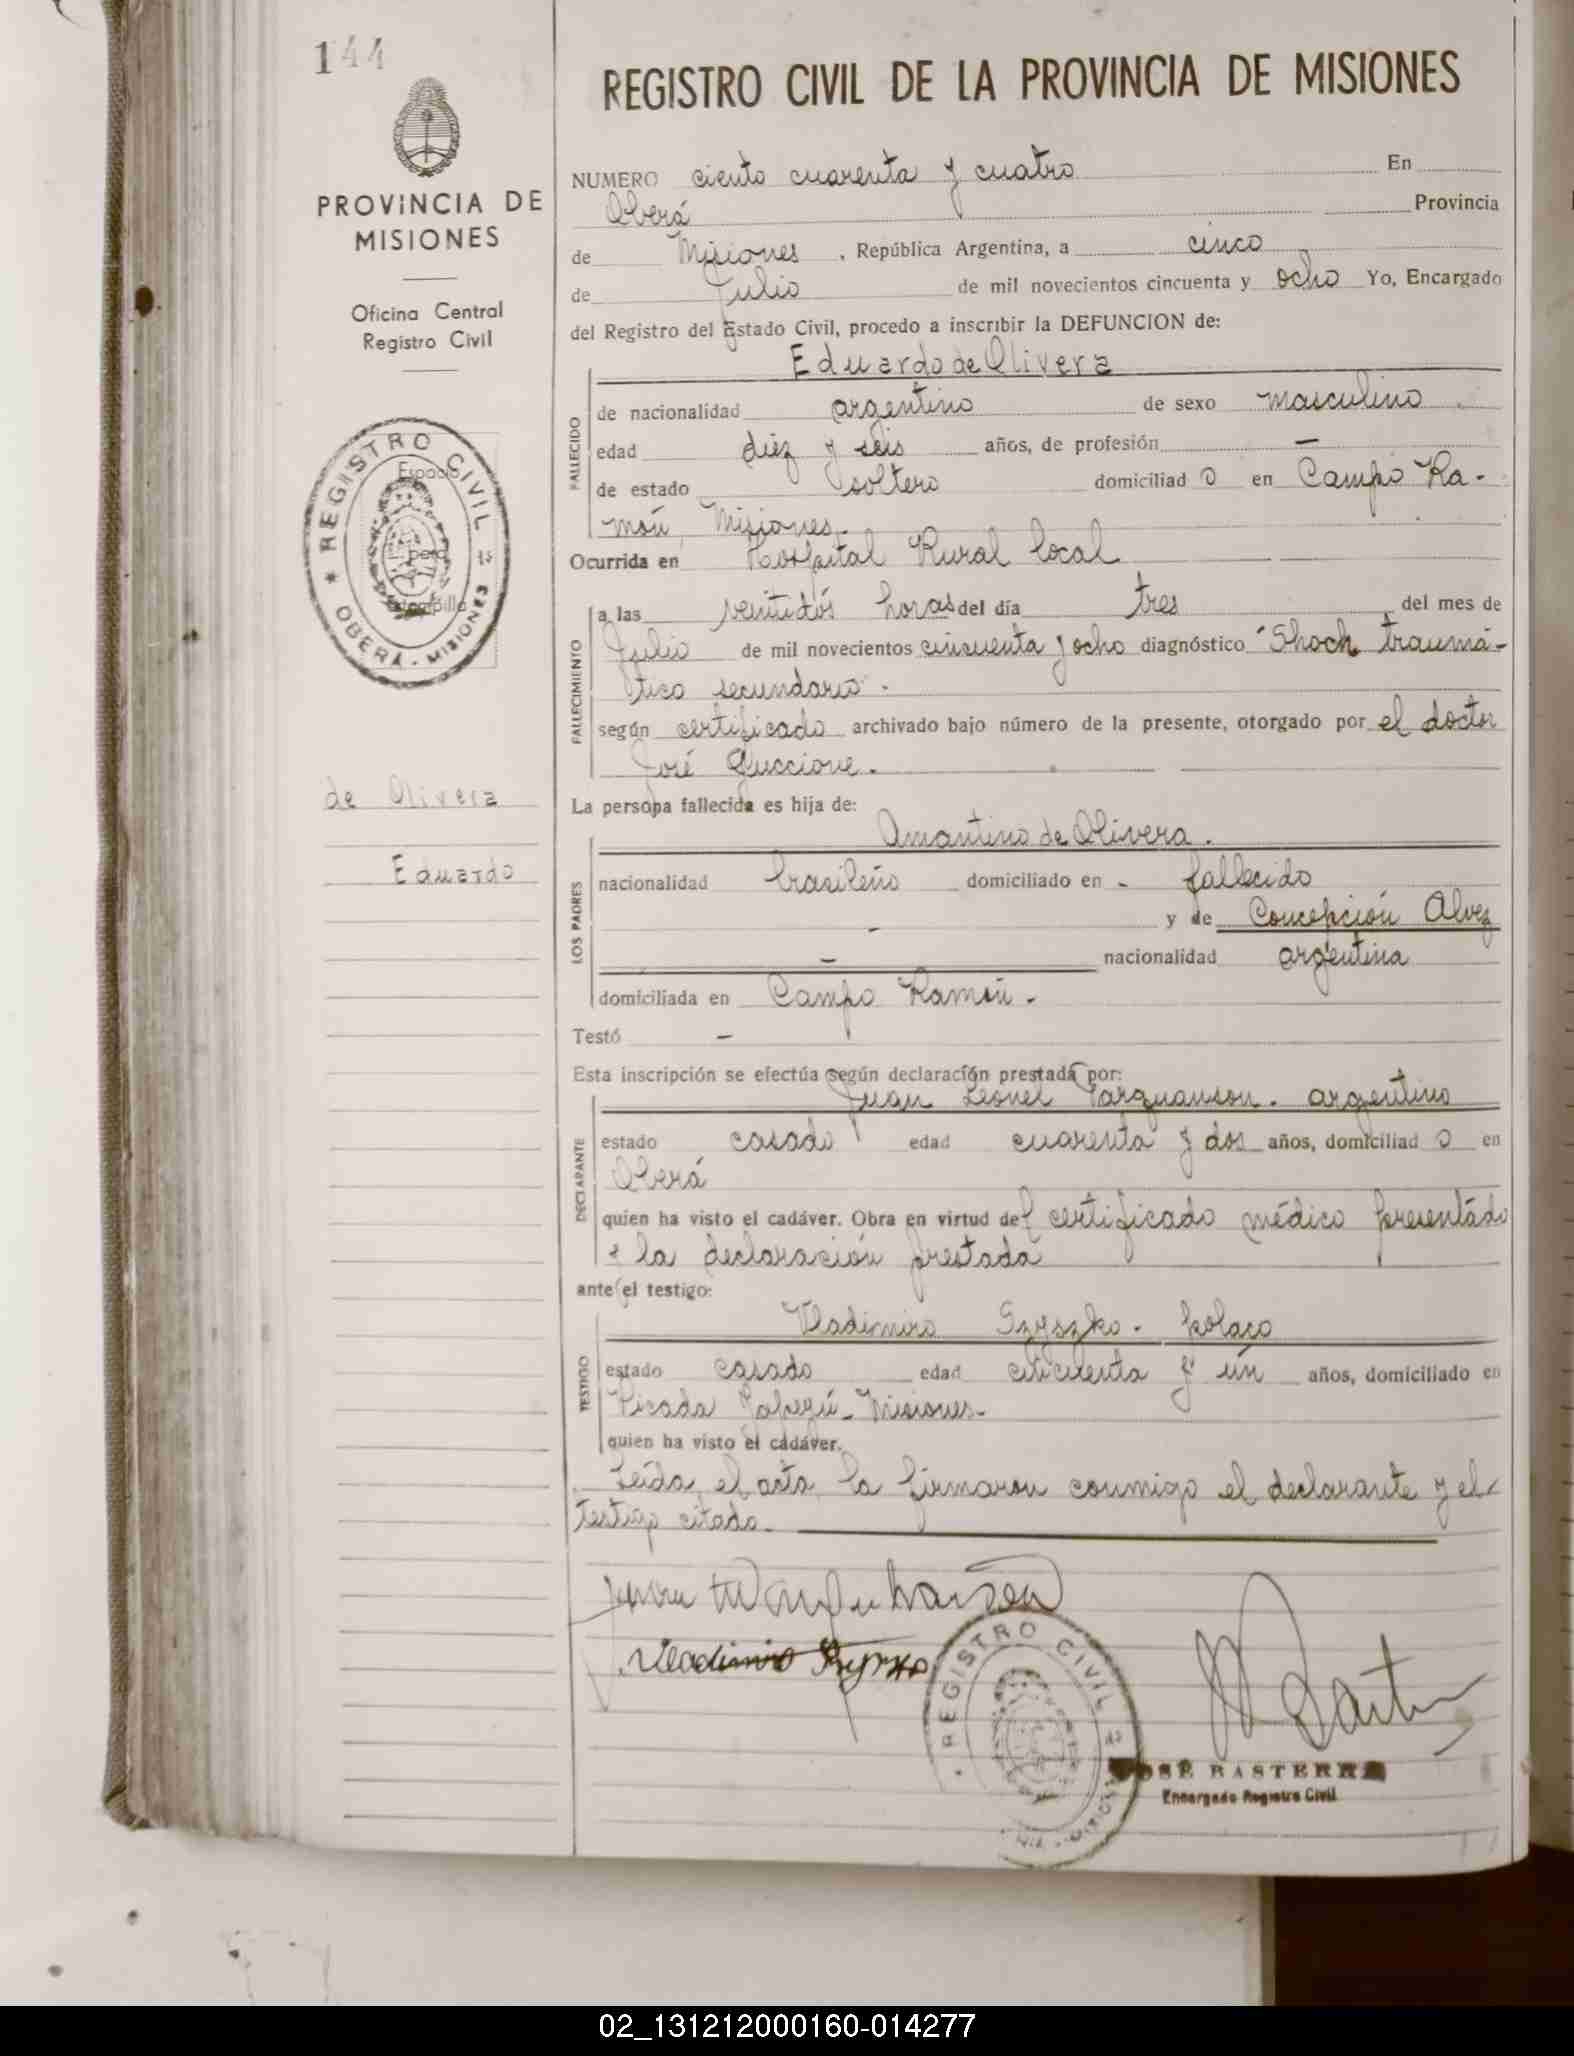 144
PROVINCIA DE
MISIONES
Oficina Central
Registro Civil
REGISTRO CIVIL
Espacio
para
Estampilla
OBERÁ - MISIONES
de Olivera
Eduardo
REGISTRO CIVIL DE LA PROVINCIA DE MISIONES
NUMERO ciento cuarenta y cuatro En
Oberá Provincia
de Misiones, República Argentina, a cinco
de Julio de mil novecientos cincuenta y ocho Yo, Encargado
del Registro del Estado Civil, procedo a inscribir la DEFUNCION de:
Eduardo de Olivera
FALLECIDO
de nacionalidad argentino de sexo masculino
edad diez y seis años, de profesión —
de estado soltero domiciliad o en Campo Ra-
món, Misiones.
Ocurrida en Hospital Rural local
FALLECIMIENTO
a las veintidós horas del día tres del mes de
Julio de mil novecientos cincuenta y ocho diagnóstico Shock traumá-
tico secundario.
según certificado archivado bajo número de la presente, otorgado por el doctor
José Guccione.
La persona fallecida es hija de:
LOS PADRES
Amantino de Olivera.
nacionalidad brasileño domiciliado en - fallecido
- y de Concepción Alvez
— nacionalidad argentina
domiciliada en Campo Ramón.
Testó —
Esta inscripción se efectúa según declaración prestada por:
DECLARANTE
Juan Leonel argentino
estado casado edad cuarenta y dos años, domiciliad o en
Oberá
quien ha visto el cadáver. Obra en virtud del certificado médico presentado
y la declaración prestada
ante el testigo:
TESTIGO
Vladimiro Szyszko - polaco
estado casado edad cincuenta y un años, domiciliado en
Picada Yapeyú - Misiones.
quien ha visto el cadáver.
Leída el acta, la firmaron conmigo el declarante y el
testigo citado.
Vladimiro Szyszko
REGISTRO CIVIL
JOSÉ BASTERRA
Encargado Registro Civil
02_131212000160-014277